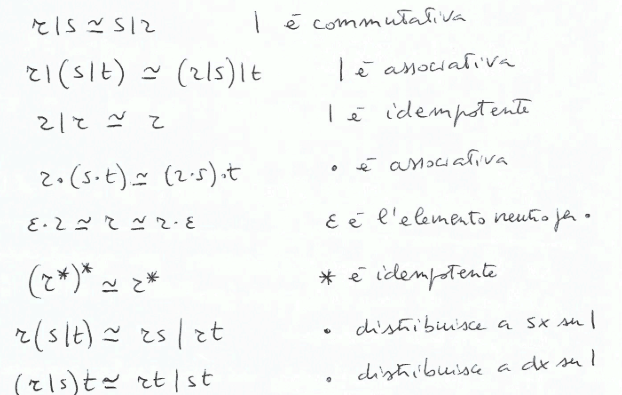 r|s ≃ s|r | è commutativa
r|(s|t) ≃ (r|s)|t | è associativa
r|r ≃ r | è idempotente
r·(s·t) ≃ (r·s)·t · è associativa
ε·r ≃ r ≃ r·ε ε è l'elemento neutro per ·
(r*)* ≃ r* * è idempotente
r(s|t) ≃ rs | rt · distribuisce a sx su |
(r|s)t ≃ rt | st · distribuisce a dx su |